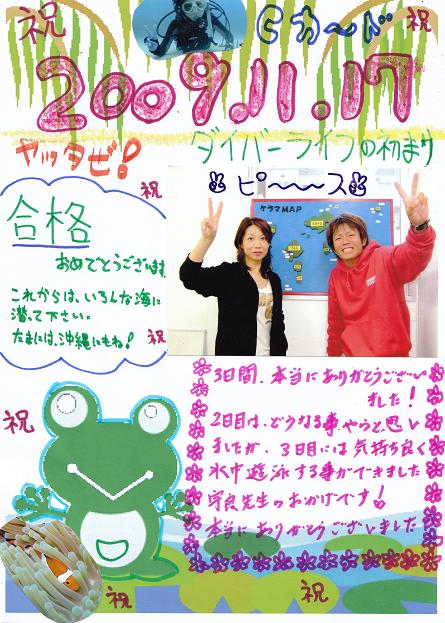 祝 Cカード 祝
2009.11.17
ヤッタぜ! ダイバーライフの初まり
祝
ピ〜〜〜ス
ケラマMAP
合格
おめでとうございます。
これからは、いろんな海に
潜って下さい。
たまには、沖縄にもね!
祝
3日間、本当にありがとうござい
ました!
2日目は、どうなる事やらと思い
ましたが、3日目には気持ち良く
水中遊泳する事ができました
先生のおかげです!
本当にありがとうございました
祝
祝
祝